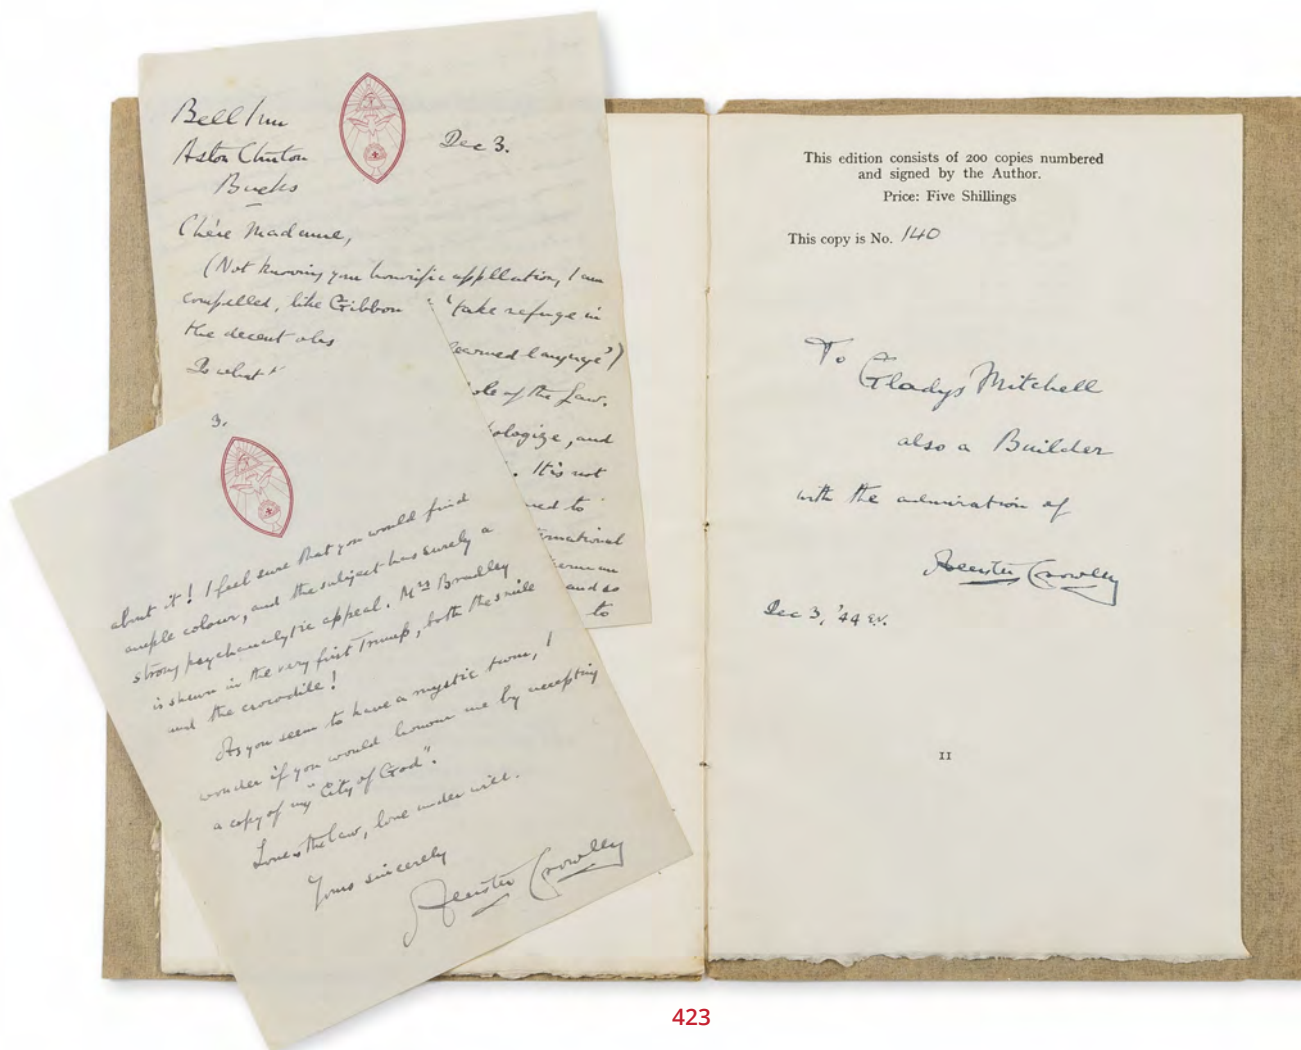 Bell Inn
Aston Clinton
Bucks
Dec 3.
Chère Madame,
(Not knowing your honorific appellation, I am
compelled, like Gibbon "'take refuge in
the decent obs
learned language')
Do what t
ole of the Law.
ologize, and
. It is not
ned to
ernational
and so
to
3.
about it! I feel sure that you would find
ample colour, and the subject has surely a
strong psychoanalytic appeal. Mrs Bradley
is shewn in the very first Trump, both the smile
and the crocodile!
As you seem to have a mystic turn, I
wonder if you would honour me by accepting
a copy of my "City of God".
Love is the law, love under will.
Yours sincerely
Aleister Crowley
This edition consists of 200 copies numbered
and signed by the Author.
Price: Five Shillings
This copy is No. 140
To
Gladys Mitchell
also a Builder
with the admiration of
Aleister Crowley
Dec 3, '44 e.v.
II
423